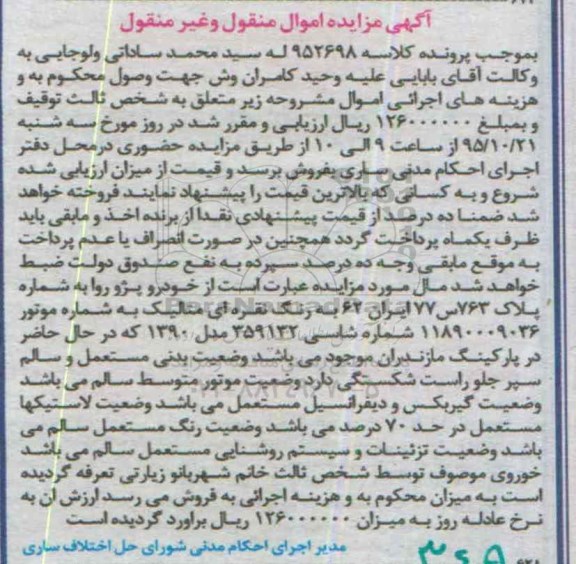 آگهی مزایده اموال منقول وغیر منقول
بموجب پرونده کلاسه ۹۵۲۶۹۸ له سید محمد ساداتی ولوجایی به
وکالت آقای بابایی علیه وحید کامران وش جهت وصول محکوم به و
هزینه های اجرائی اموال مشروحه زیر متعلق به شخص ثالث توقیف
و بمبلغ ۱۲۶۰۰۰۰۰۰ ریال ارزیابی و مقرر شد در روز مورخ سه شنبه
۹۵/۱۰/۲۱ از ساعت ۹ الی ۱۰ از طریق مزایده حضوری درمحل دفتر
اجرای احکام مدنی ساری بفروش برسد و قیمت از میزان ارزیابی شده
شروع و به کسانی که بالاترین قیمت را پیشنهاد نمایند فروخته خواهد
شد ضمنا ده درصد از قیمت پیشنهادی نقدا از برنده اخذ و مابقی باید
ظرف یکماه پرداخت گردد همچنین در صورت انصراف یا عدم پرداخت
به موقع مابقی وجه ده درصد سپرده به نفع صندوق دولت ضبط
خواهد شد مال مورد مزایده عبارت است از خودرو پژو روا به شماره
پلاک ۷۶۳س۷۷ ایران ۶۲ به رنگ نقره ای متالیک به شماره موتور
۱۱۸۹۰۰۰۹۰۳۶ شماره شاسی ۳۵۹۱۳۲ مدل ۱۳۹۰ که در حال حاضر
در پارکینگ مازندران موجود می باشد وضعیت بدنی مستعمل و سالم
سپر جلو راست شکستگی دارد وضعیت موتور متوسط سالم می باشد
وضعیت گیربکس و دیفرانسیل مستعمل می باشد وضعیت لاستیکها
مستعمل در حد ۷۰ درصد می باشد وضعیت رنگ مستعمل سالم می
باشد وضعیت تزئینات و سیستم روشنایی مستعمل سالم می باشد
خوروی موصوف توسط شخص ثالث خانم شهربانو زیارتی تعرفه گردیده
است به میزان محکوم به و هزینه اجرائی به فروش می رسد ارزش ان به
نرخ عادله روز به میزان ۱۲۶۰۰۰۰۰۰ ریال براورد گردیده است
مدیر اجرای احکام مدنی شورای حل اختلاف ساری
۳۶۵